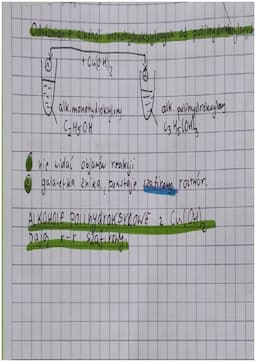 Odróżnianie alkoholi monohydroksylowych od polihydroksylowych
+ Cu(OH)₂
① ②
alk. monohydroksylowy alk. polihydroksylowy
C₂H₅OH C₃H₅(OH)₃
① nie widać objawów reakcji
② galaretka znika, powstaje szafirowy roztwór.
ALKOHOLE POLIHYDROKSYLOWE z Cu(OH)₂
DAJĄ r-r szafirowy